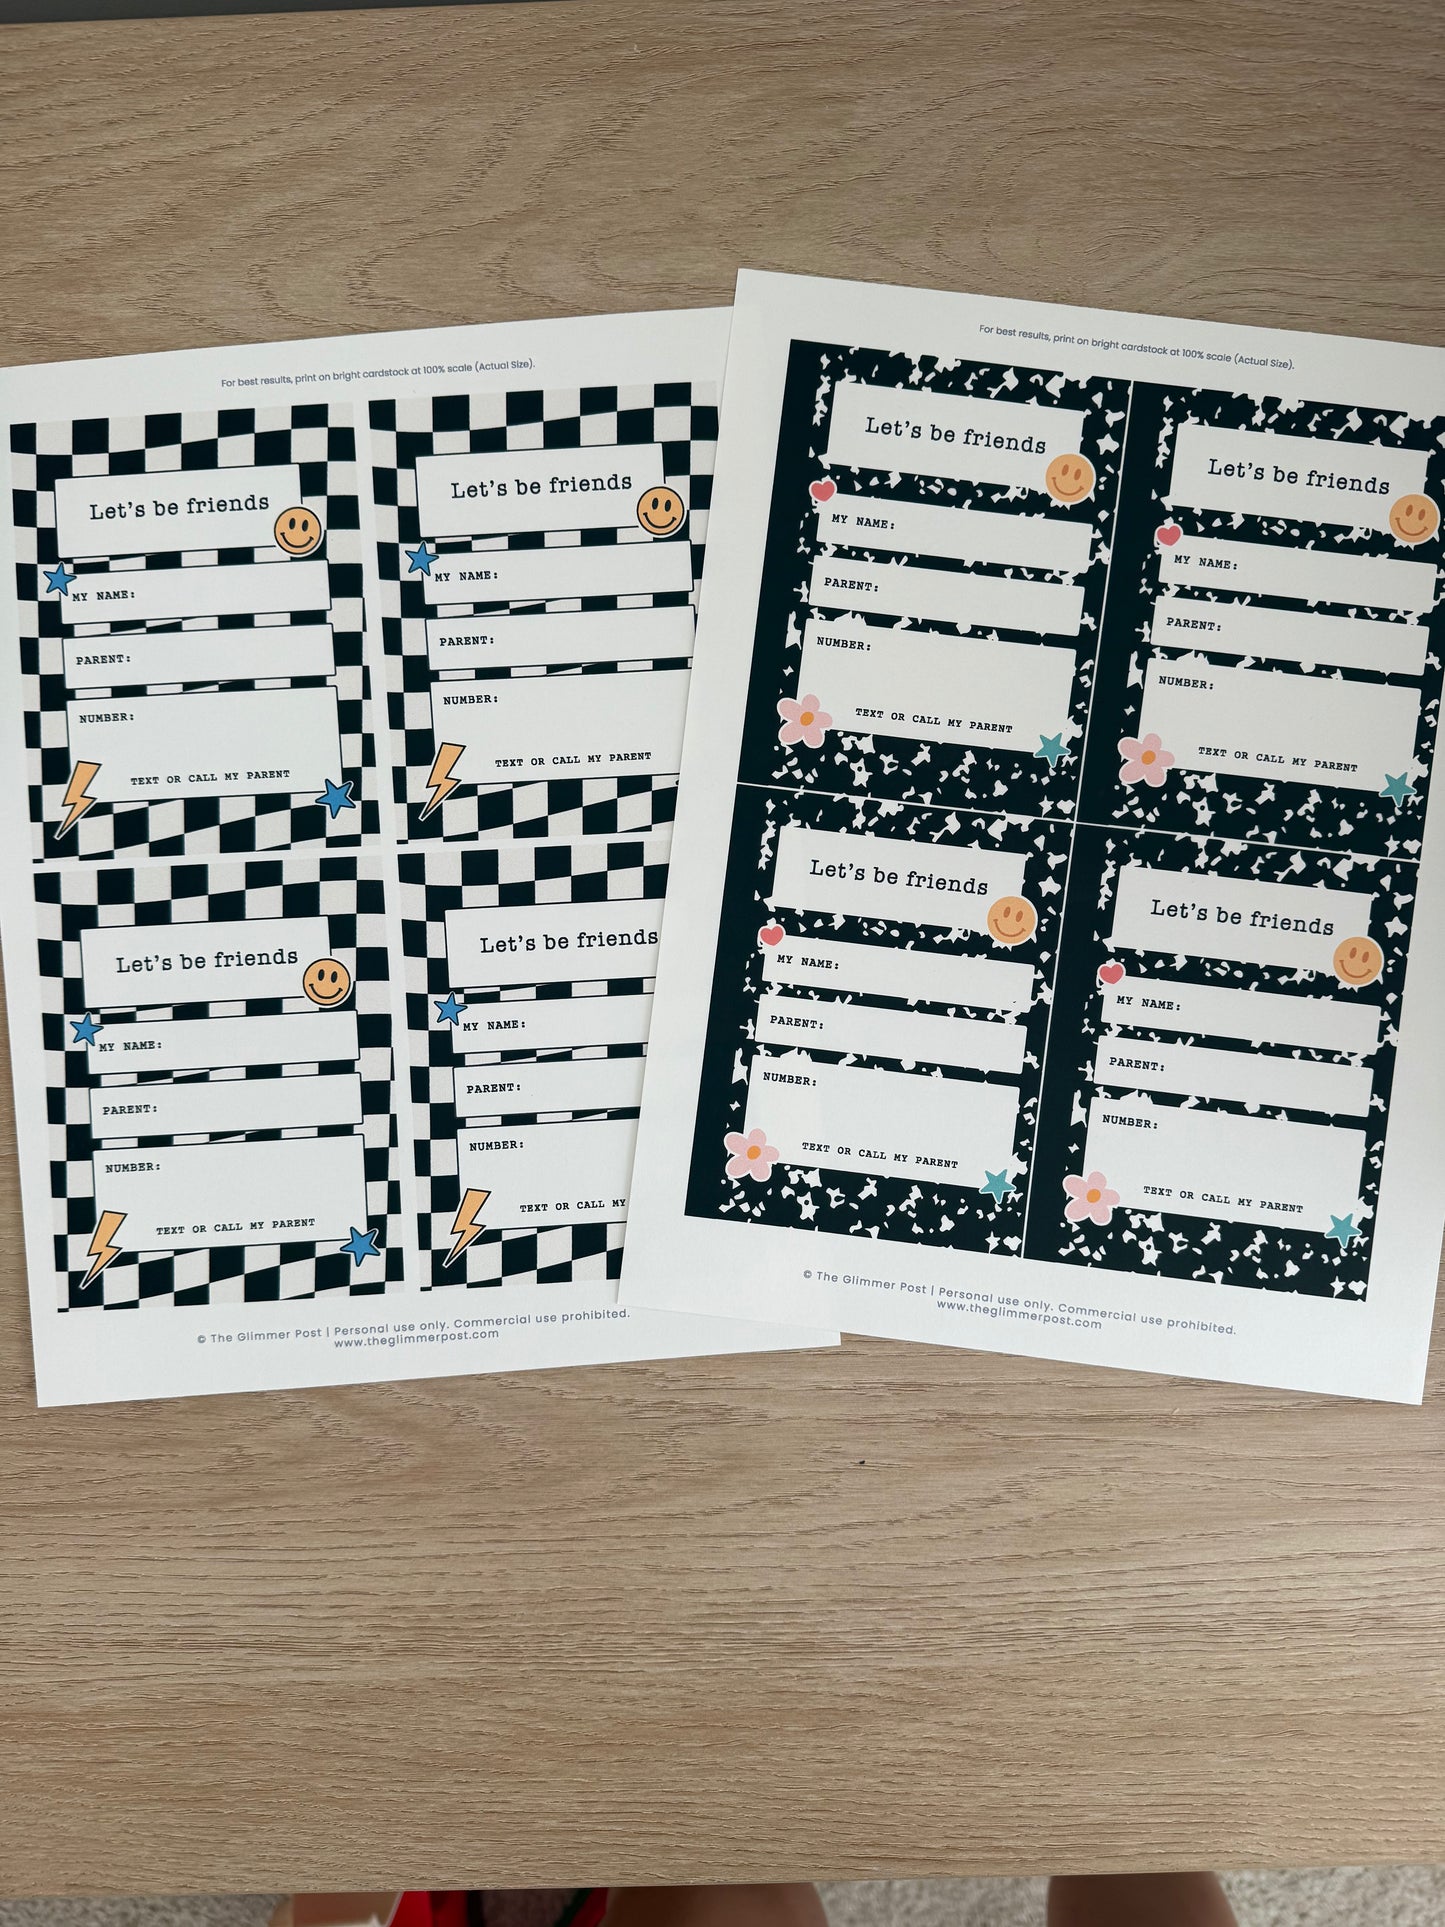 For best results, print on bright cardstock at 100% scale (Actual Size).
Let's be friends
MY NAME:
PARENT:
NUMBER:
TEXT OR CALL MY PARENT
Let's be friends
MY NAME:
PARENT:
NUMBER:
TEXT OR CALL MY PARENT
Let's be friends
MY NAME:
PARENT:
NUMBER:
TEXT OR CALL MY PARENT
Let's be friends
MY NAME:
PARENT:
NUMBER:
TEXT OR CALL MY
© The Glimmer Post | Personal use only. Commercial use prohibited.
www.theglimmerpost.com
For best results, print on bright cardstock at 100% scale (Actual Size).
Let's be friends
MY NAME:
PARENT:
NUMBER:
TEXT OR CALL MY PARENT
Let's be friends
MY NAME:
PARENT:
NUMBER:
TEXT OR CALL MY PARENT
Let's be friends
MY NAME:
PARENT:
NUMBER:
TEXT OR CALL MY PARENT
Let's be friends
MY NAME:
PARENT:
NUMBER:
TEXT OR CALL MY PARENT
© The Glimmer Post | Personal use only. Commercial use prohibited.
www.theglimmerpost.com